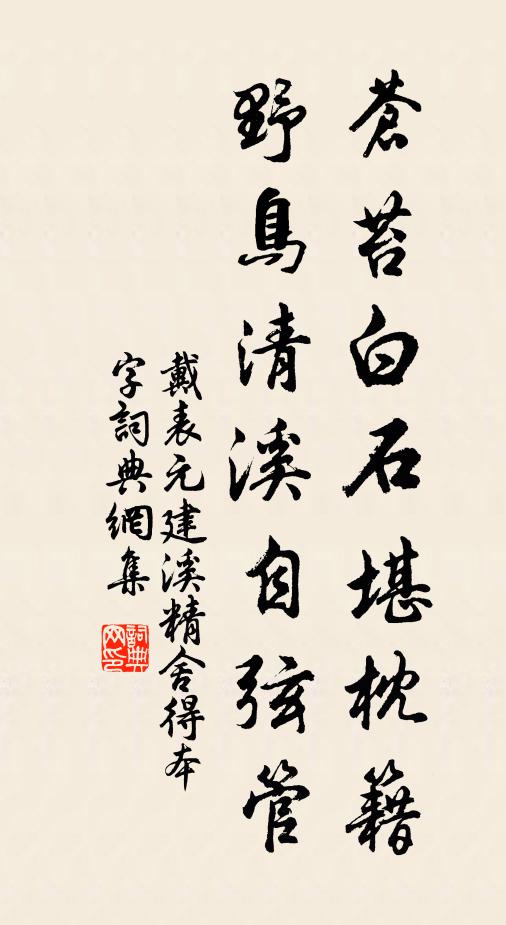 蒼苔白石堪枕籍
野鳥清溪自弦管
戴表元建溪精舍得本
字詞典網集
詞典
网印